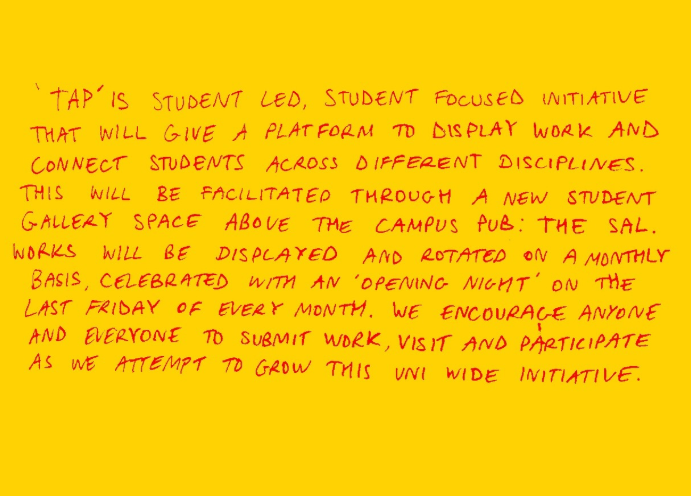 'TAP' IS STUDENT LED, STUDENT FOCUSED INITIATIVE
THAT WILL GIVE A PLATFORM TO DISPLAY WORK AND
CONNECT STUDENTS ACROSS DIFFERENT DISCIPLINES.
THIS WILL BE FACILITATED THROUGH A NEW STUDENT
GALLERY SPACE ABOVE THE CAMPUS PUB: THE SAL.
WORKS WILL BE DISPLAYED AND ROTATED ON A MONTHLY
BASIS, CELEBRATED WITH AN 'OPENING NIGHT' ON THE
LAST FRIDAY OF EVERY MONTH. WE ENCOURAGE ANYONE
AND EVERYONE TO SUBMIT WORK, VISIT AND PARTICIPATE
AS WE ATTEMPT TO GROW THIS UNI WIDE INITIATIVE.